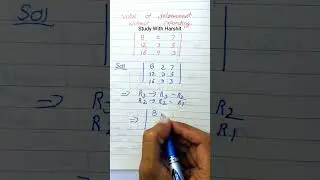 Value of determinant
without Expanding.
Study With Harshit
Sol
8 2 7
12 3 5
16 4 3
Sol
8 2 7
12 3 5
16 4 3
⇒ R3 → R3 - R2
R2 → R2 - R1
R2
R1
⇒ 8